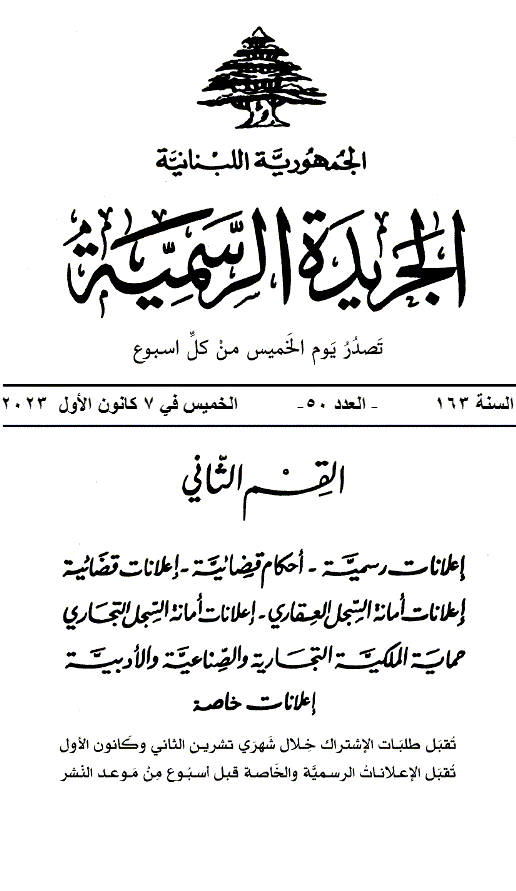 الجمهوريّة اللبنانيّة
الجريدة الرسميّة
تَصدُرُ يَوم الخَميس منْ كلِّ اسبوع
السنة ١٦٣ - العدد ٥٠ - الخميس في ٧ كانون الأول ٢٠٢٣
القِسْم الثّاني
إعلانات رسميَّة - أحكام قضائيَّة - إعلانات قضائية
إعلانات أمانة السِّجل العقاري - إعلانات أمانة السِّجل التجاري
حماية الملكيَّة التجارية والصِّناعيَّة والأدبيَّة
إعلانات خاصة
تُقبَل طلبَات الإشتراك خِلال شَهرَي تشرين الثاني وكَانون الأول
تُقبَل الإعلاناتُ الرسميَّة والخَاصة قبل أسبُوع مِنْ مَوعد النَشر